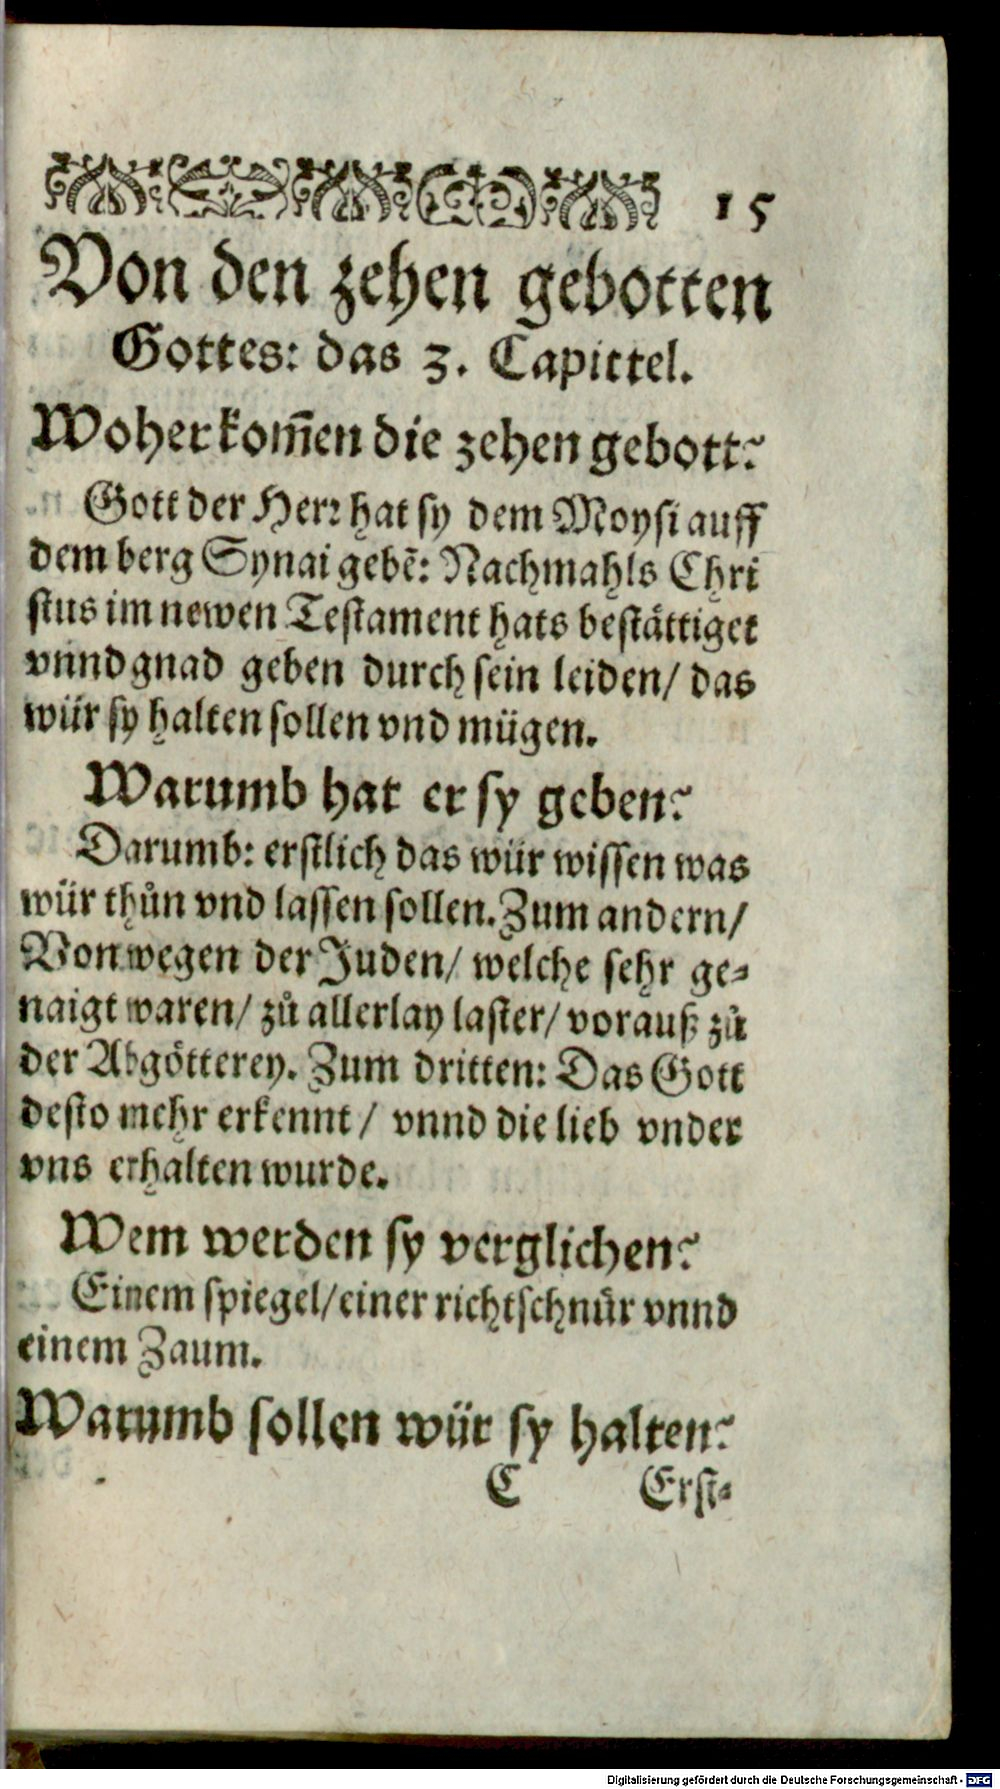 15
Von den zehen gebotten
Gottes: das 3. Capittel.
Woher kom̃en die zehen gebott?
Gott der Herꝛ hat sy dem Moysi auff
dem berg Synai gebẽ: Nachmahls Chri
stus im newen Testament hats bestättiget
vnnd gnad geben durch sein leiden/ das
wür sy halten sollen vnd mügen.
Warumb hat er sy geben?
Darumb: erstlich das wür wissen was
wür thůn vnd lassen sollen. Zum andern/
Von wegen der Juden/ welche sehr ge-
naigt waren/ zů allerlay laster/ vorauß zů
der Abgötterey. Zum dritten: Das Gott
desto mehr erkennt/ vnnd die lieb vnder
vns erhalten wurde.
Wem werden sy verglichen?
Einem spiegel/ einer richtschnůr vnnd
einem Zaum.
Warumb sollen wür sy halten?
C Erst-
Digitalisierung gefördert durch die Deutsche Forschungsgemeinschaft - DFG